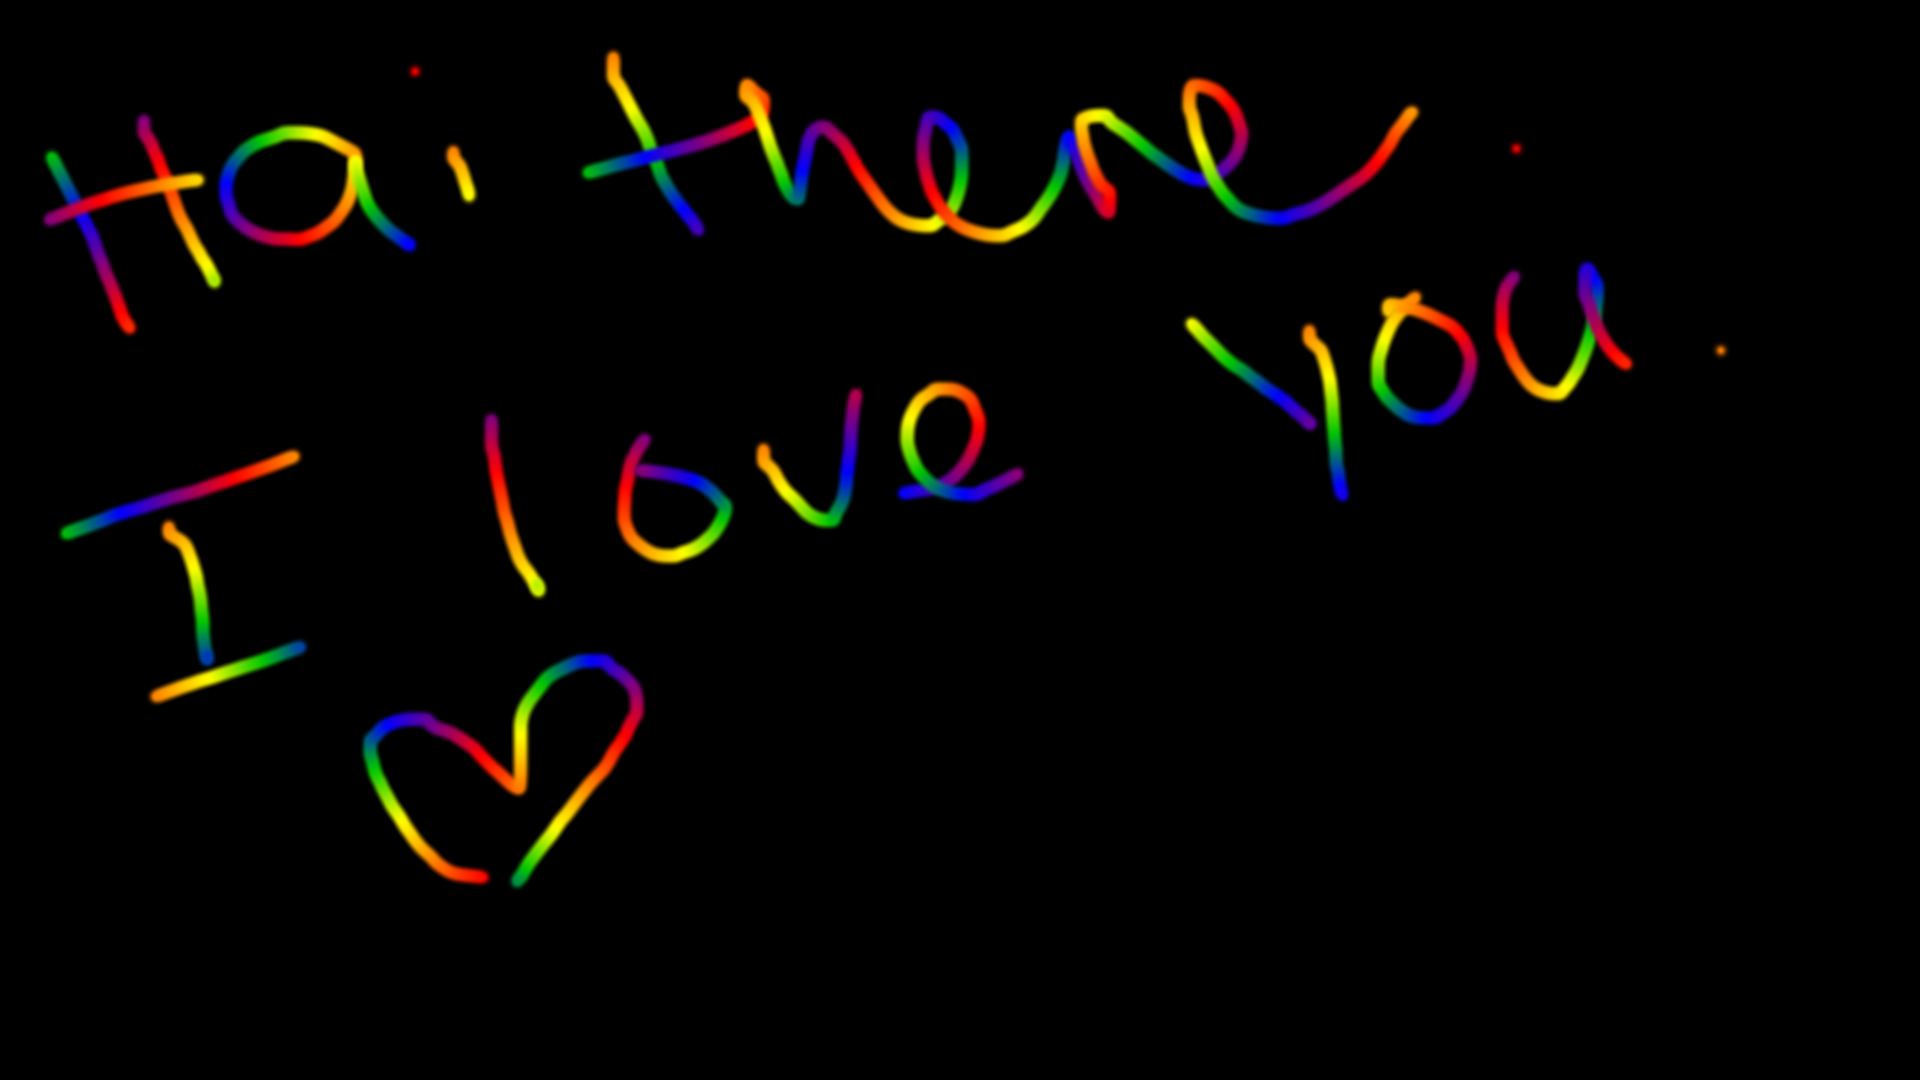 Hai there.
I love you.